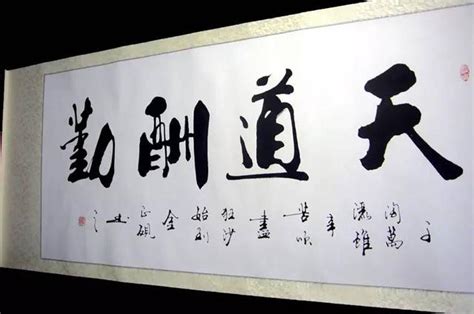 天道酬勤
千淘萬漉雖辛苦吹盡狂沙始到金